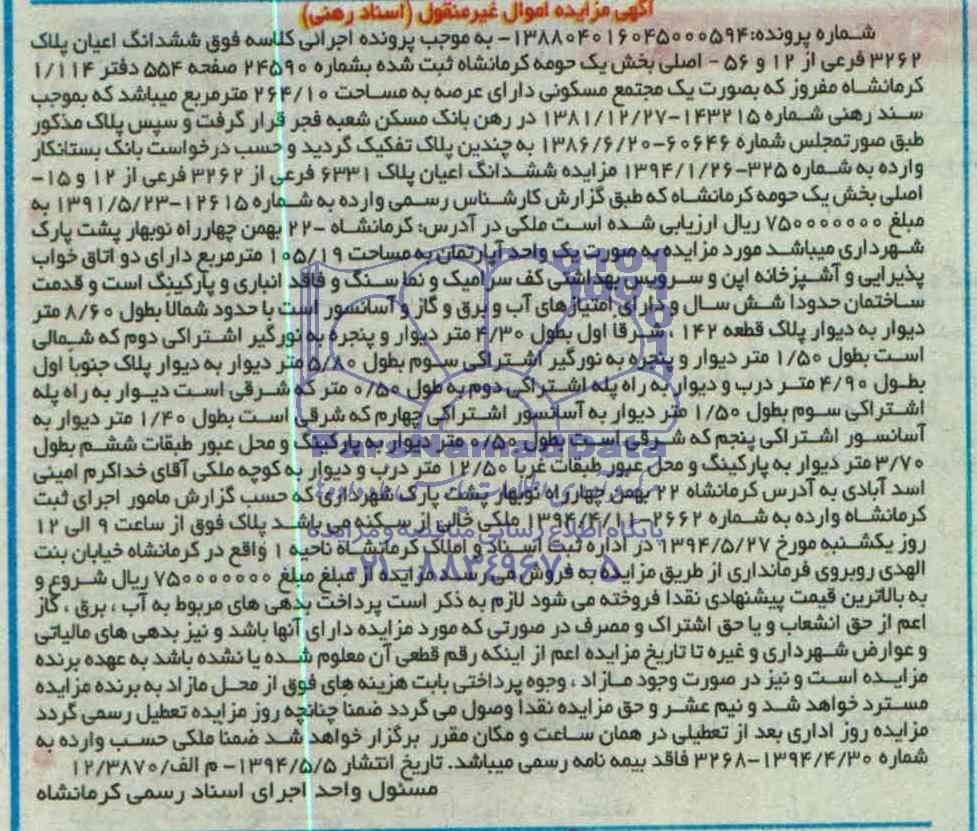 آگهی مزایده اموال غیرمنقول (اسناد رهنی)
شماره پرونده: ۱۳۸۸۰۴۰۱۶۰۴۵۰۰۰۵۹۴- به موجب پرونده اجرائی کلاسه فوق ششدانگ اعیان پلاک
۳۲۶۲ فرعی از ۱۲ و ۵۶ - اصلی بخش یک حومه کرمانشاه ثبت شده بشماره ۲۴۵۹۰ صفحه ۵۵۴ دفتر ۱/۱۱۴
کرمانشاه مفروز که بصورت یک مجتمع مسکونی دارای عرصه به مساحت ۲۶۴/۱۰ مترمربع میباشد که بموجب
سند رهنی شماره ۱۴۳۲۱۵-۱۳۸۱/۱۲/۲۷ در رهن بانک مسکن شعبه فجر قرار گرفت و سپس پلاک مذکور
طبق صورتمجلس شماره ۶۰۶۴۶-۱۳۸۶/۶/۲۰ به چندین پلاک تفکیک گردید و حسب درخواست بانک بستانکار
وارده به شماره ۳۲۵-۱۳۹۴/۱/۲۶ مزایده ششدانگ اعیان پلاک ۶۳۳۱ فرعی از ۳۲۶۲ فرعی از ۱۲ و ۱۵-
اصلی بخش یک حومه کرمانشاه که طبق گزارش کارشناس رسمی وارده به شماره ۱۲۶۱۵-۱۳۹۱/۵/۲۳ به
مبلغ ۷۵۰۰۰۰۰۰۰ ریال ارزیابی شده است ملکی در آدرس: کرمانشاه -۲۲ بهمن چهارراه نوبهار پشت پارک
شهرداری میباشد مورد مزایده به صورت یک واحد آپارتمان به مساحت ۱۰۵/۱۹ مترمربع دارای دو اتاق خواب
پذیرایی و آشپزخانه اپن و سرویس بهداشتی کف سرامیک و نما سنگ و فاقد انباری و پارکینگ است و قدمت
ساختمان حدودا شش سال و دارای امتیازهای آب و برق و گاز و آسانسور است با حدود شمالا بطول ۸/۶۰ متر
دیوار به دیوار پلاک قطعه ۱۴۲ ، شرقا اول بطول ۴/۳۰ متر دیوار و پنجره به نورگیر اشتراکی دوم که شمالی
است بطول ۱/۵۰ متر دیوار و پنجره به نورگیر اشتراکی سوم بطول ۵/۸۰ متر دیوار به دیوار پلاک جنوبا اول
بطول ۴/۹۰ متر درب و دیوار به راه پله اشتراکی دوم به طول ۰/۵۰ متر که شرقی است دیوار به راه پله
اشتراکی سوم بطول ۱/۵۰ متر دیوار به آسانسور اشتراکی چهارم که شرقی است بطول ۱/۴۰ متر دیوار به
آسانسور اشتراکی پنجم که شرقی است بطول ۰/۵۰ متر دیوار به پارکینگ و محل عبور طبقات ششم بطول
۳/۷۰ متر دیوار به پارکینگ و محل عبور طبقات غربا ۱۲/۵۰ متر درب و دیوار به کوچه ملکی آقای خداکرم امینی
اسد آبادی به آدرس کرمانشاه ۲۲ بهمن چهارراه نوبهار پشت پارک شهرداری که حسب گزارش مامور اجرای ثبت
کرمانشاه وارده به شماره ۲۶۶۲-۱۳۹۴/۴/۱۱ ملکی خالی از سکنه می باشد پلاک فوق از ساعت ۹ الی ۱۲
روز یکشنبه مورخ ۱۳۹۴/۵/۲۷ در اداره ثبت اسناد و املاک کرمانشاه ناحیه ۱ واقع در کرمانشاه خیابان بنت
الهدی روبروی فرمانداری از طریق مزایده به فروش می رسد مزایده از مبلغ مبلغ ۷۵۰۰۰۰۰۰۰ ریال شروع و
به بالاترین قیمت پیشنهادی نقدا فروخته می شود لازم به ذکر است پرداخت بدهی های مربوط به آب ، برق ، گاز
اعم از حق انشعاب و یا حق اشتراک و مصرف در صورتی که مورد مزایده دارای آنها باشد و نیز بدهی های مالیاتی
و عوارض شهرداری و غیره تا تاریخ مزایده اعم از اینکه رقم قطعی آن معلوم شده یا نشده باشد به عهده برنده
مزایده است و نیز در صورت وجود مازاد ، وجوه پرداختی بابت هزینه های فوق از محل مازاد به برنده مزایده
مسترد خواهد شد و نیم عشر و حق مزایده نقدا وصول می گردد ضمنا چنانچه روز مزایده تعطیل رسمی گردد
مزایده روز اداری بعد از تعطیلی در همان ساعت و مکان مقرر برگزار خواهد شد ضمنا ملکی حسب وارده به
شماره ۳۲۶۸-۱۳۹۴/۴/۳۰ فاقد بیمه نامه رسمی میباشد. تاریخ انتشار ۱۳۹۴/۵/۵- م الف/۱۲/۳۸۷۰
مسئول واحد اجرای اسناد رسمی کرمانشاه
ParsNamadData
پایگاه اطلاع رسانی مناقصه و مزایده
۰۲۱-۸۸۳۴۹۶۷۰-۵